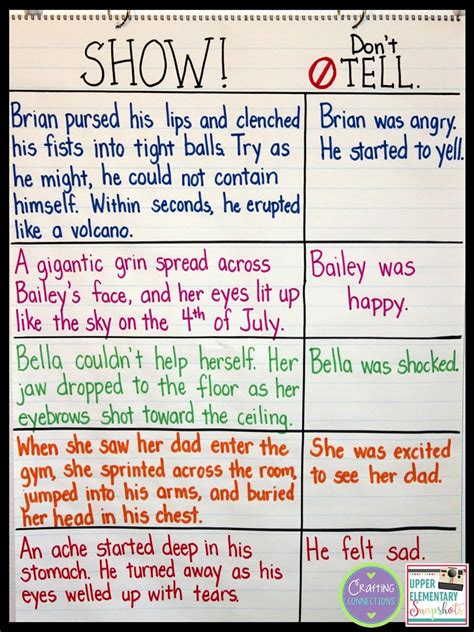 SHOW!
Don't
TELL.
Brian pursed his lips and clenched
his fists into tight balls. Try as
he might, he could not contain
himself. Within seconds, he erupted
like a volcano.
Brian was angry.
He started to yell.
A gigantic grin spread across
Bailey's face, and her eyes lit up
like the sky on the 4th of July.
Bailey was
happy.
Bella couldn't help herself. Her
jaw dropped to the floor as her
eyebrows shot toward the ceiling.
Bella was shocked.
When she saw her dad enter the
gym, she sprinted across the room,
jumped into his arms, and buried
her head in his chest.
She was excited
to see her dad.
An ache started deep in his
stomach. He turned away as his
eyes welled up with tears.
He felt sad.
CRAFTING
CONNECTIONS
UPPER
ELEMENTARY
Snapshots